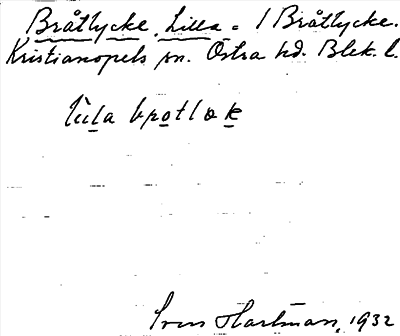 Bråtlycke, Lilla = 1 Bråtlycke.
Kristianopels sn. Östra hd. Blek. l.
Sven Hartman, 1932